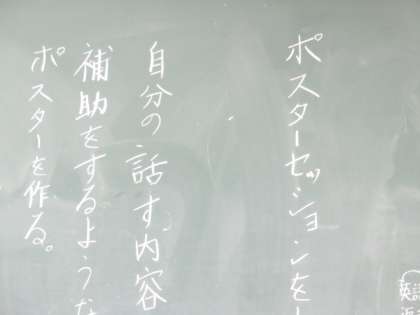 英語
ポスターセッションを
自分の話す内容
補助をするような
ポスターを作る。